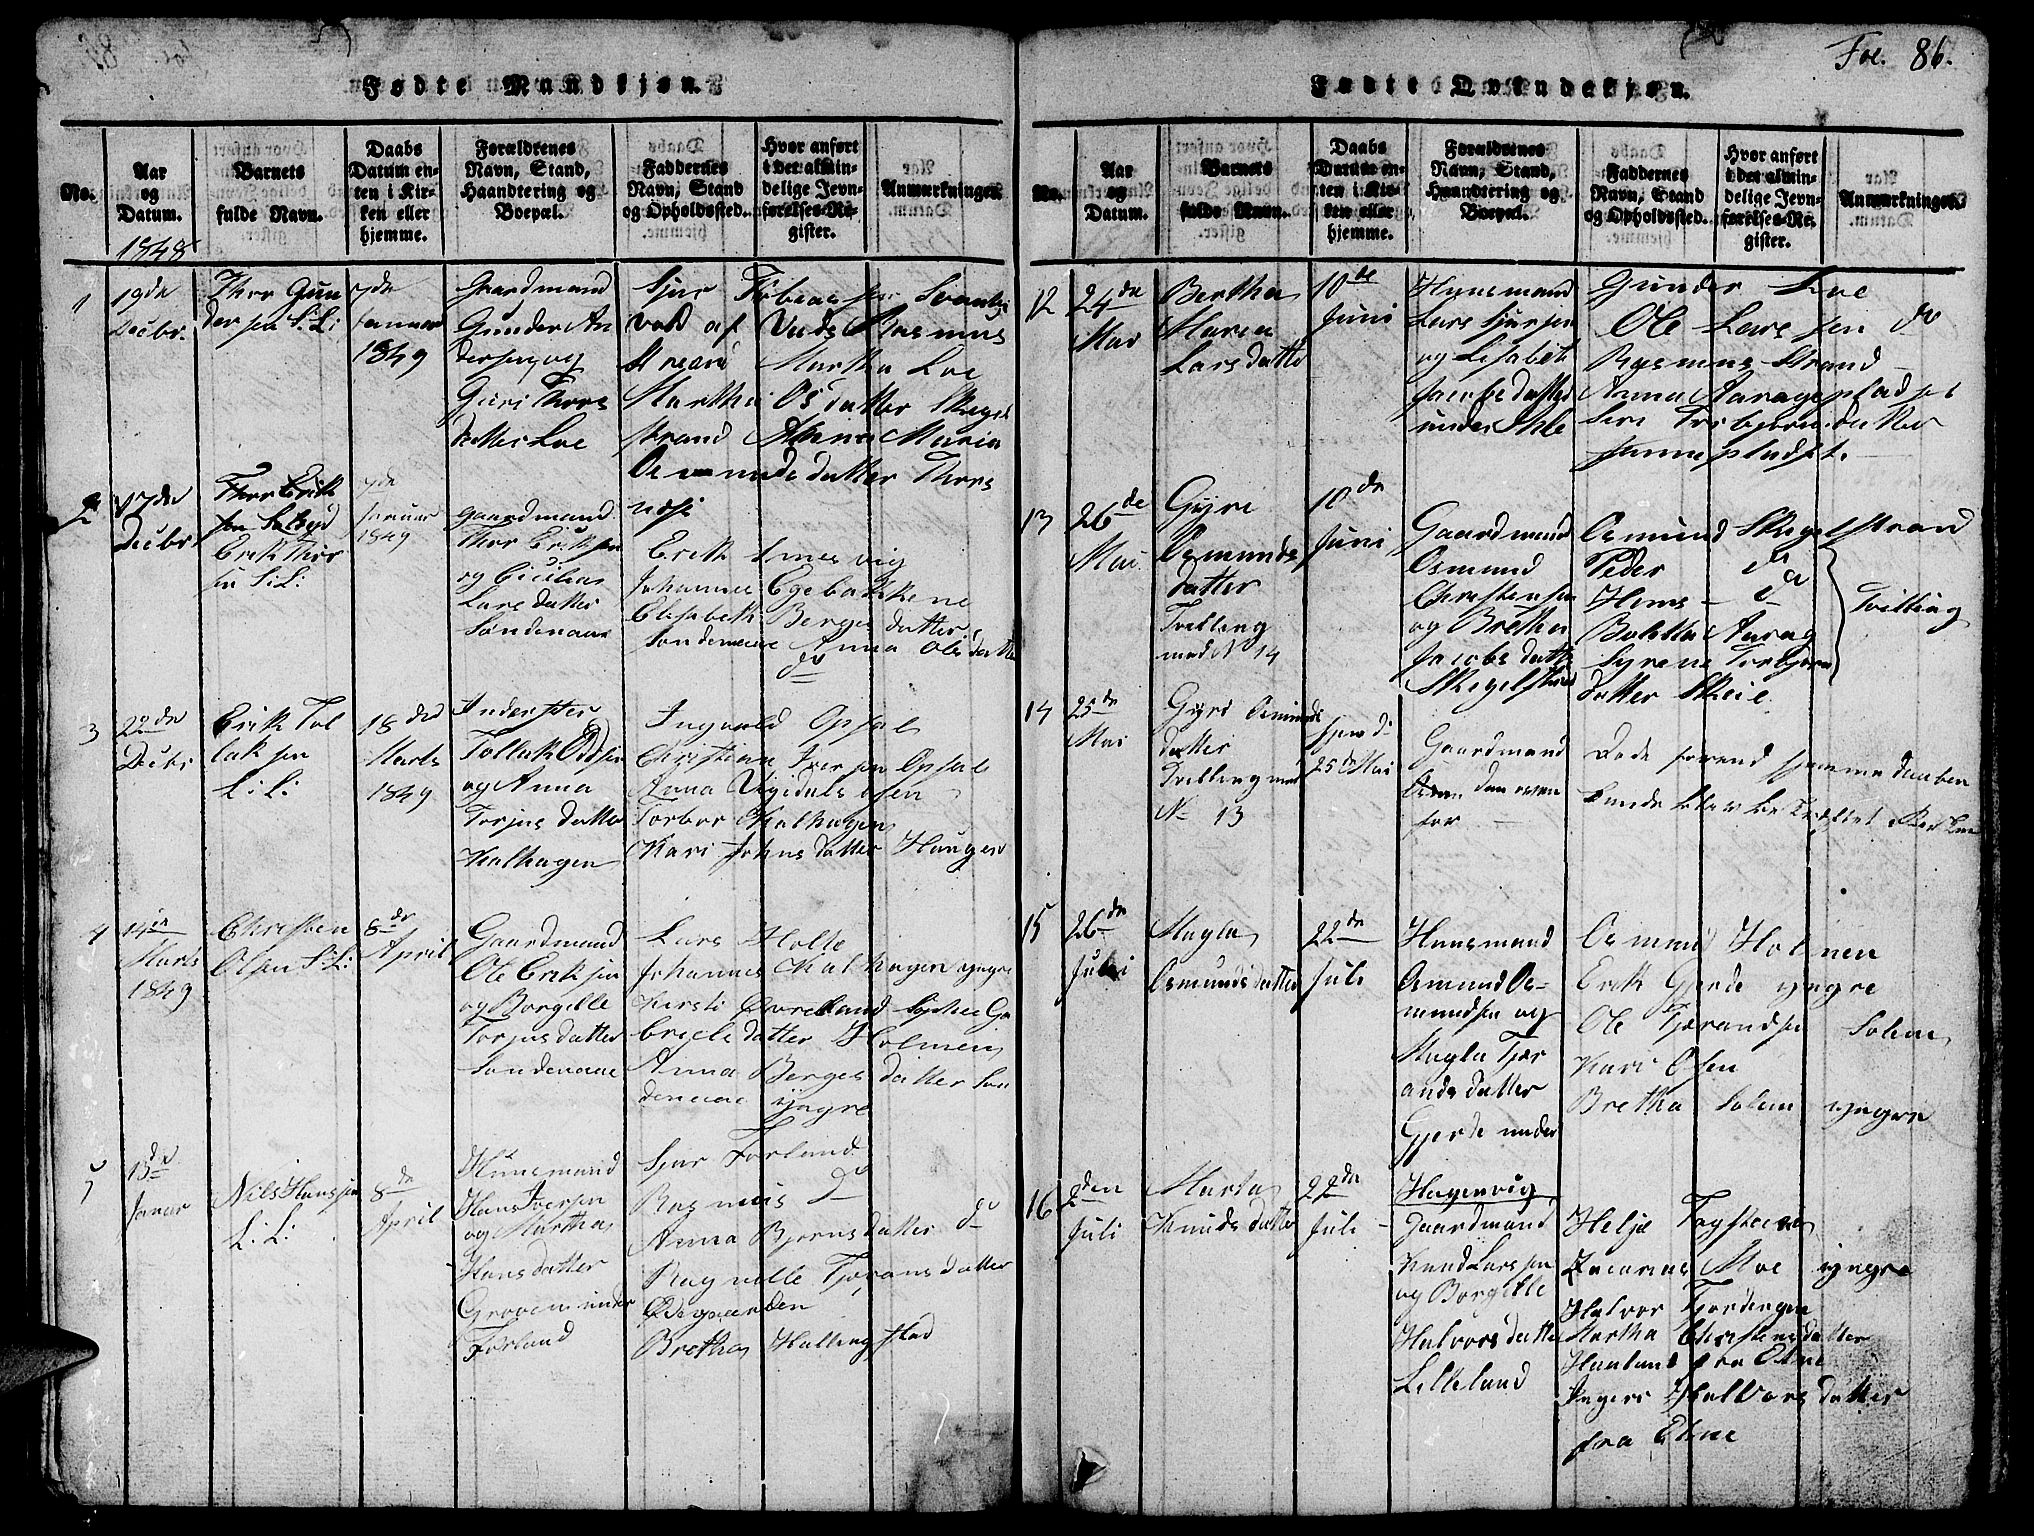 Foe. 86.
Fødte Mandkjøn.
No.
Aar og Datum.
Barnets fulde Navn.
Daabs Datum enten i Kirken eller hjemme.
Forældrenes Navn, Stand, Haandtering og Boepæl.
Faddernes Navn, Stand og Opholdssted.
Hvor anført i det almindelige Jevnførelses-Register.
Anmærkninger.
1848
1
19de
Decbr.
Thor Gun
dersen S: L:
7de
Januar
1849
Gaardmand
Gunder An
dersen og
Guri Thors
datter Loe
Martha Loe
Martha Osdatter
strand Anna Maria
Osmundsdatter Thors
næs
2
17de
Decbr
Thor Erik
sen
Erik Thor
sen L: L:
7de
Januar
1849
gaardmand
Thor Eriksen
og Cicilia
Larsdatter
Søndenaae
Erik Imesvig
Johannes Egebakkene
Elisabeth Berges datter
Søndenaae Anna Olsdatter
do
3
22de
Decbr
Erik Tol
laksen
L: L:
18de
Marts
1849
Inderster
Tollak Oddsen
og Anna
Torjusdatter
Kalhagen
Ingvald Opsal
Christian Iversen Opsal
Anna
Torbor Kalhagen
Kari Johnsdatter Haugen
4
14de
Marts
1849
Christen
Olsen S: L:
8de
April
Gaardmand
Ole Eriksen
og Borgille
Torjusdatter
Søndenaae
Lars Holte
Johannes Kalhagen yngre
Kirsti Qvreland Sophie Ga
brielsdatter Holmen
Anna Berges datter Søn
denaae yngre
5
13de
Januar
Nils Hanssen
L: L:
8de
April
Huusmand
Hans Iversen
og Martha
Hansdatter
Groven under
Førland
Sjur Førland
Rasmus do
Anna Bjørnsdatter do
Ragnille Tjøransdatter
Ødegaarden
Bretha Hallingstad
Fødte Qvindekjøn.
No.
Aar og Datum.
Barnets fulde Navn.
Daabs Datum enten i Kirken eller hjemme.
Forældrenes Navn, Stand, Haandtering og Boepæl.
Faddernes Navn, Stand og Opholdssted.
Hvor anført i det almindelige Jevnførelses-Register.
Anmærkninger.
12
24de
Mai
Bertha
Maria
Larsdatter
10de
Juni
Huusmand
Lars Sjursen
og Lisabet
Jacobsdatter
under
Gunder Loe
Ole Larsen do
Rasmus Strand
Anna Aaragepladset
Siri Torbjørnsdatter
13
26de
Mai
Gyri
Osmunds
datter
Tvilling
med N 14
10de
Juni
Gaardmand
Osmund
Christensen
og Bretha
Jacobsdatter
Skegelstrand
Osmund Skegelstrand
Peder do
Hans - do
Bertha Aarag
Syrene Torbjørns
datter Skeie
Tvilling
14
25de
Mai
Gyri Osmunds
datter
Tvilling med
N 13
hjemd:
25de Mai
Gaardmand
den oven
for
Døde forend hjemme daaben
kunde blive bekræftet i Kirken
15
26de
Juni
Magla
Osmundsdatter
22de
Juli
Huusmand
Osmund Os-
mundsen og
Magla Tjør
andsdatter
Gjerde under
Hagenvig
Osmund Holmen
Erik Gjerde yngre
Ole Tjørandsen Solem
Kari Olsen
Bretha Solem yngre
16
2den
Juli
Marta
Knudsdatter
22de
Juli
Gaardmand
Knud Larsen
og Borgille
Halvorsdatter
Lilleland
Helje Fagsteen
Zacarias Moe yngre
Halvor Tjordengen
Martha Christensdatter
Hauland fra Etne
Ingeri Halvorsdatter
fra Etne